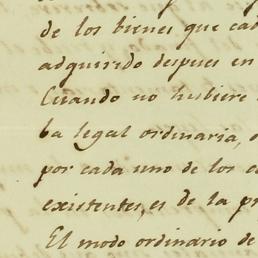 de los bienes que cad
adquirido despues en
Cuando no hubiere
ba legal ordinaria, o
por cada uno de los c
existentes, es de la pr
El modo ordinario de